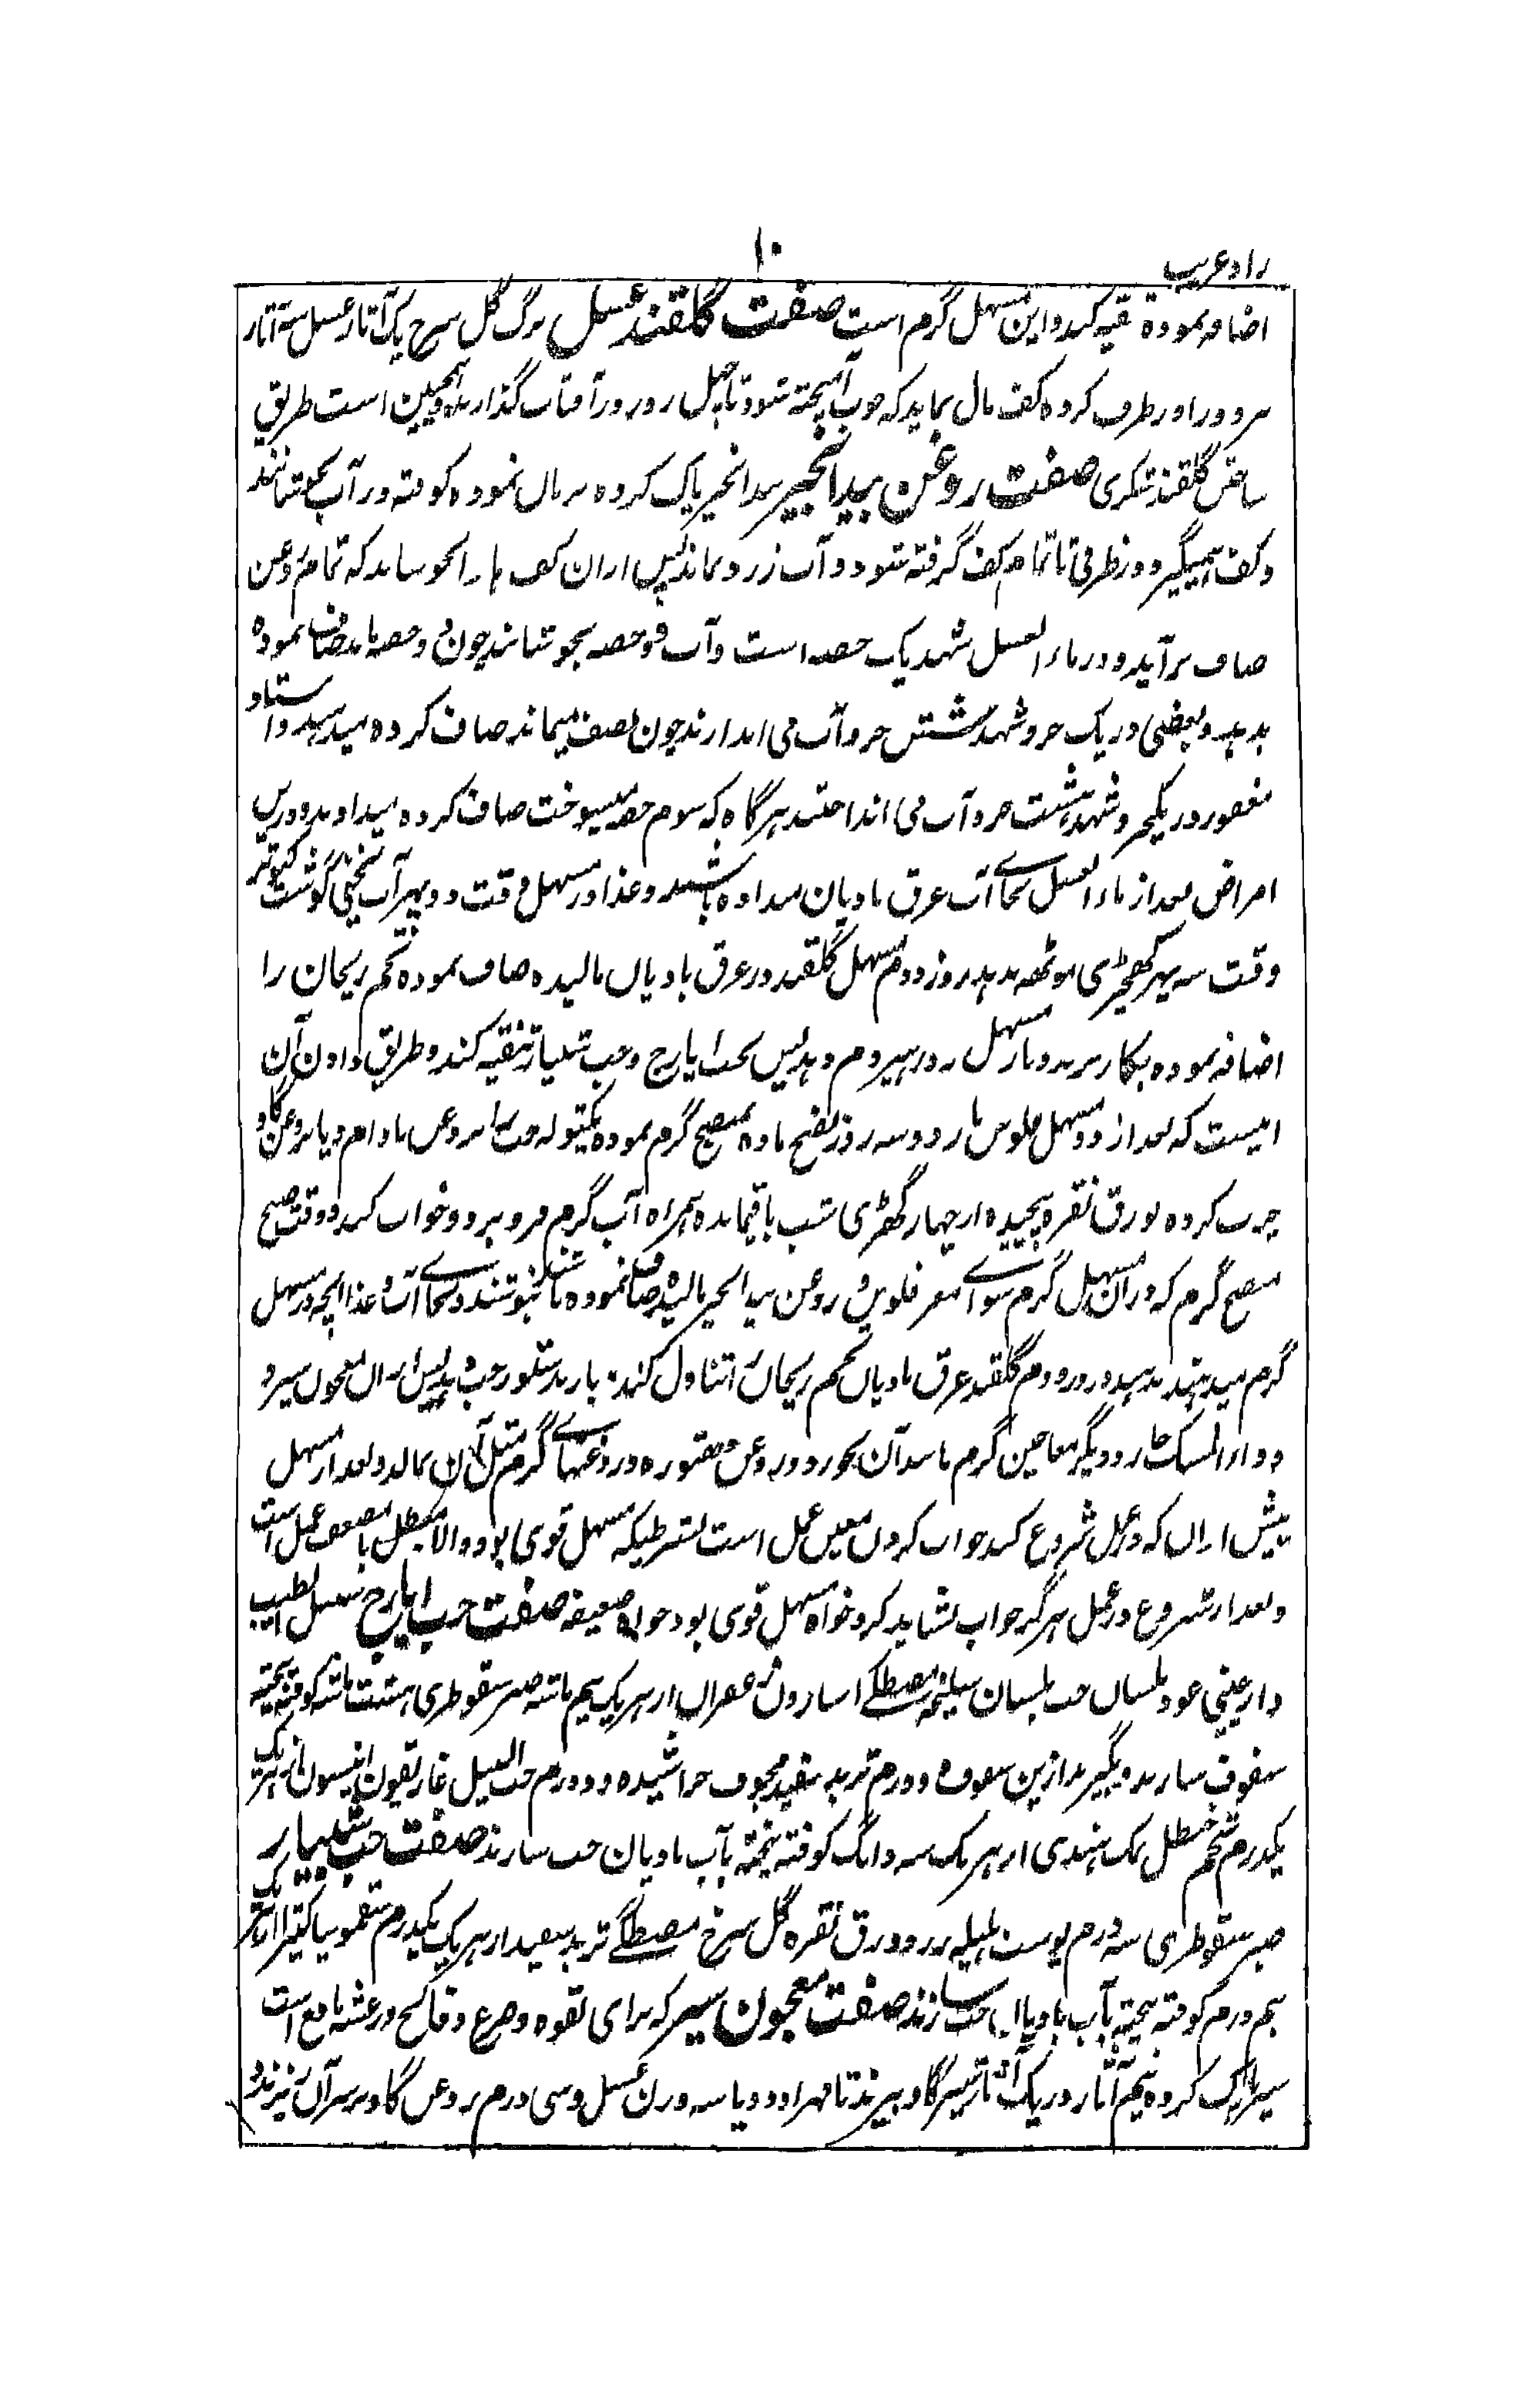 زاد غریب
۱۰
اضافه نموده تنقیه کنند و این مسهل گرم است صفت گلقند عسل برگ گل سرخ یک آثار عسل سه آثار
هر دو را در ظرف کرده کف مال نماید که خوب آمیخته شود تا چهل روز در آفتاب گذارند و همچنین است طریق
ساختن گلقند شکری صفت روغن بیدانجیر بیدانجیر پاک کرده بریان نموده کوفته در آب بجوشانند
و کف میگیرد در ظرفی تا تمام کف گرفته شود و آب زرد بماند پس ازان کف ها را بجوشاند که تمام روغن
صاف برآید و در ماء العسل شهد یک حصه است و آب دو حصه بجوشانند چون دو حصه ماند صاف نموده
بدهند و بعضی در یک جزو شهد شش جزو آب می اندازند چون نصف میماند صاف کرده میدهند و استاد
مغفور در یکجزو شهد هشت جزو آب می انداختند هرگاه که سوم حصه میسوخت صاف کرده میدادند و درین
امراض بعد از ماء العسل بجای آب عرق بادیان میداده باشند و غذا در مسهل وقت دوپهر آب یخنی گوشت کبوتر
وقت سه پهر کهچڑی موٹهه بدهند روز دوم مسهل گلقند در عرق بادیان مالیده صاف نموده تخم ریحان را
اضافه نموده بکار برند و باز مسهل روز سیوم دهند پس بحب ایارج و حب شبیار تنقیه کنند و طریق دادن آن
اینست که بعد از دو مسهل فلوس باز دو سه روز نضج ماده بمنضج گرم نموده یکتوله حب را بروغن بادام و یا بروغن گاو
چرب کرده بورق نقره پیچیده از چهار گهڑی شب باقیمانده همراه آب گرم فرو برد و خواب کند و وقت صبح
منضج گرم که دران مسهل گرم سوای مغز فلوس و روغن بیدانجیر مالیده صاف نموده بنوشند و بجای آب و غذا آنچه در مسهل
گرم میدهند بدهند و روز دوم گلقند عرق بادیان تخم ریحان تناول کنند باز بدستور حب بدهند پس ازان معجون سیر و
دواء المسک حار و دیگر معاجین گرم مانند آن بخورد و روغن و روغنهای گرم مثل آن بمالد و بعد از مسهل
پیش ازان که در عمل شروع کند خواب کردن معین عمل است بشرطیکه مسهل قوی بود و الا مبطل یا مضعف عمل است
و بعد از شروع در عمل هرگز خواب نشاید کرد خواه مسهل قوی بود خواه ضعیف صفت حب ایارج سنبل الطیب
دارچینی عود بلسان حب بلسان سلیخه مصطگی اسارون زعفران از هر یک نیم ماشه صبر سقوطری هشت ماشه کوفته بیخته
سفوف سازند و بگیرند ازین سفوف دو درم تربد سفید مجوف خراشیده دو درم حب النیل غاریقون انیسون از هر یک
یکدرم شحم حنظل نمک هندی از هر یک سه دانگ کوفته بیخته بآب بادیان حب سازند صفت حب شبیار
صبر سقوطری سه درم پوست هلیله زرد ورق نقره گل سرخ مصطگی تربد سفید از هر یک یکدرم سقمونیا کتیرا از هر یک
نیم درم کوفته بیخته بآب بادیان حب سازند صفت معجون سیر که برای لقوه و صرع و فالج و رعشه نافع است
سیر پاک کرده نیم آثار در یک آثار شیر گاو بپزند تا مهرا شود و با سه وزن عسل و سی درم روغن گاو بر سر آن ریزند و